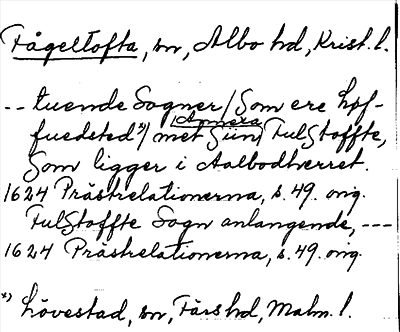 Fågeltofta, sn, Albo hd, Krist. l.
-- tuende Sogner/Som ere höf-
fuedsted*)/ met Siin Annexa/ FulStoffte,
Som ligger i Aalbodherret.
1624 Prästrelationerna, s. 49. orig.
FulStoffte Sogn anlangende, ---
1624 Prästrelationerna, s. 49. orig.
*) Lövestad, sn, Färs hd, Malm. l.